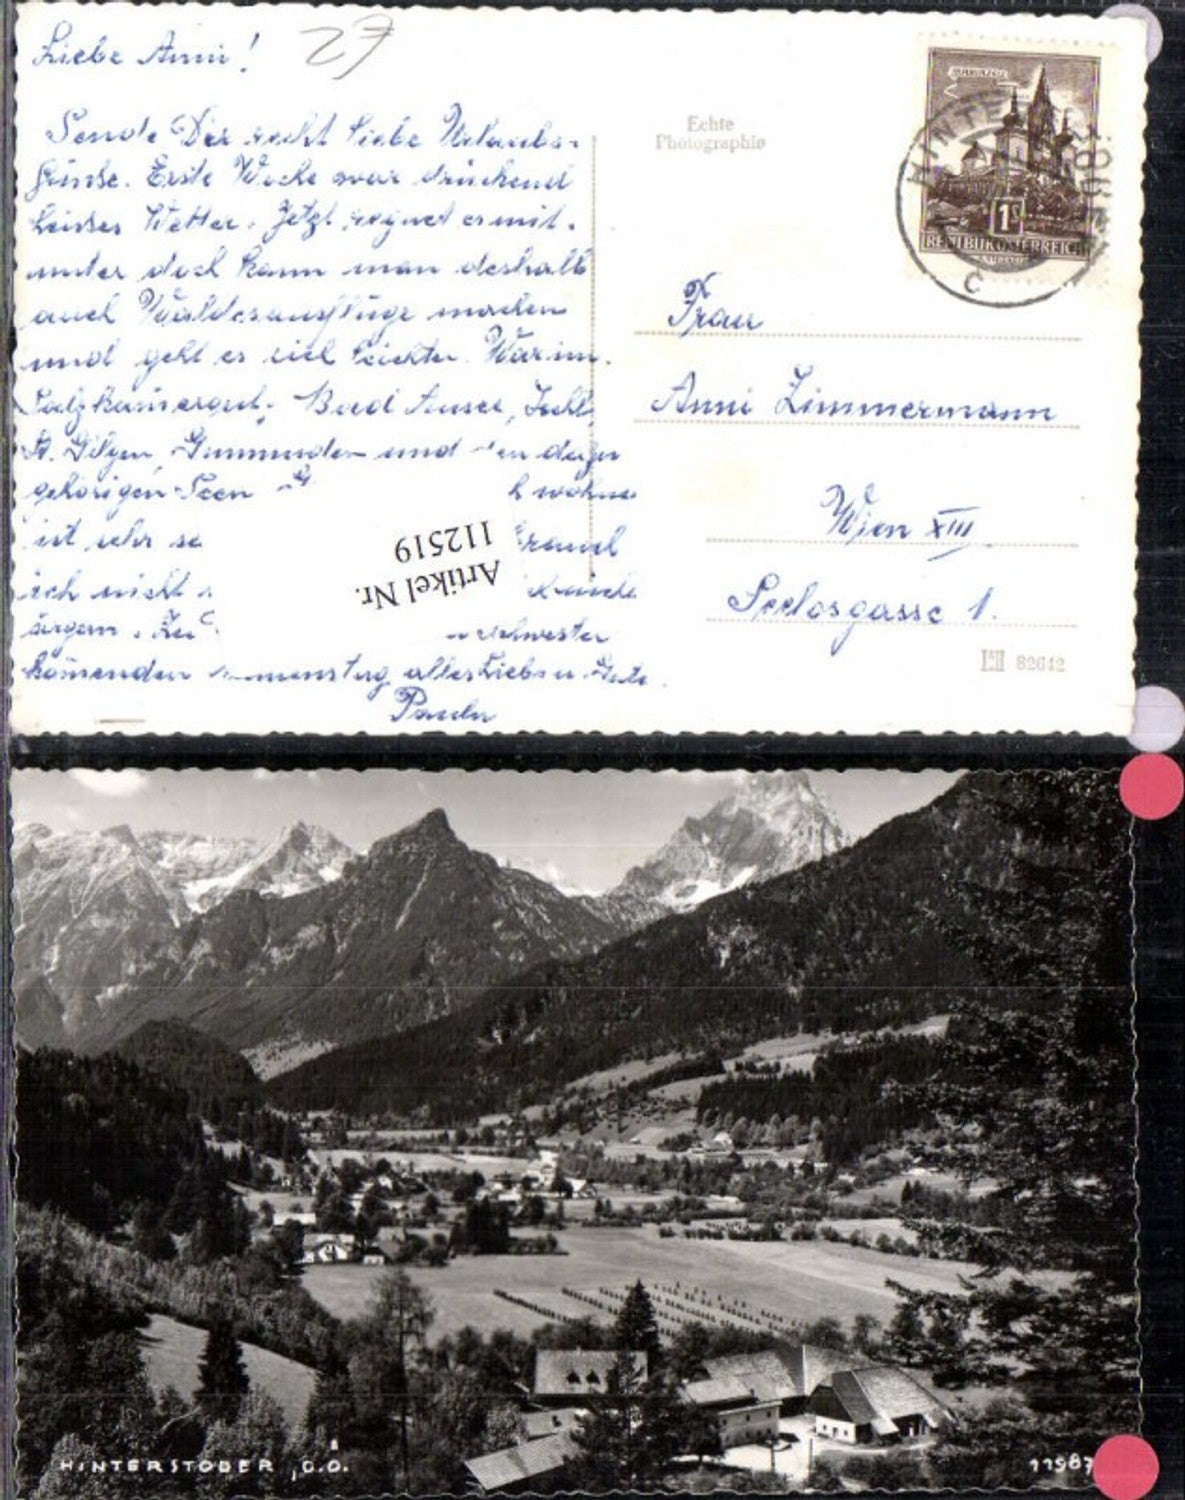 Liebe Anni!
27
Sende Dir recht liebe Urlaubs-
grüße. Erste Woche war drückend
heißes Wetter. Jetzt regnet es mit-
unter doch kann man deshalb
auch Waldesausflüge machen
und geht es viel leichter. War im
Salzkammergut, Bad Aussee, Ischl,
St. Gilgen, Gmunden und den dazu
gehörigen Seen
h wohne
ist sehr
ich nicht
ärgern. Zu
schwester
kommenden alles Liebe u. Gute.
Paula
Artikel Nr.
112519
Echte
Photographie
HINTERST
1S
REPUBLIK ÖSTERREICH
C
Frau
Anni Zimmermann
Wien XIII
Seelosgasse 1.
82642
HINTERSTODER, O.Ö.
11587